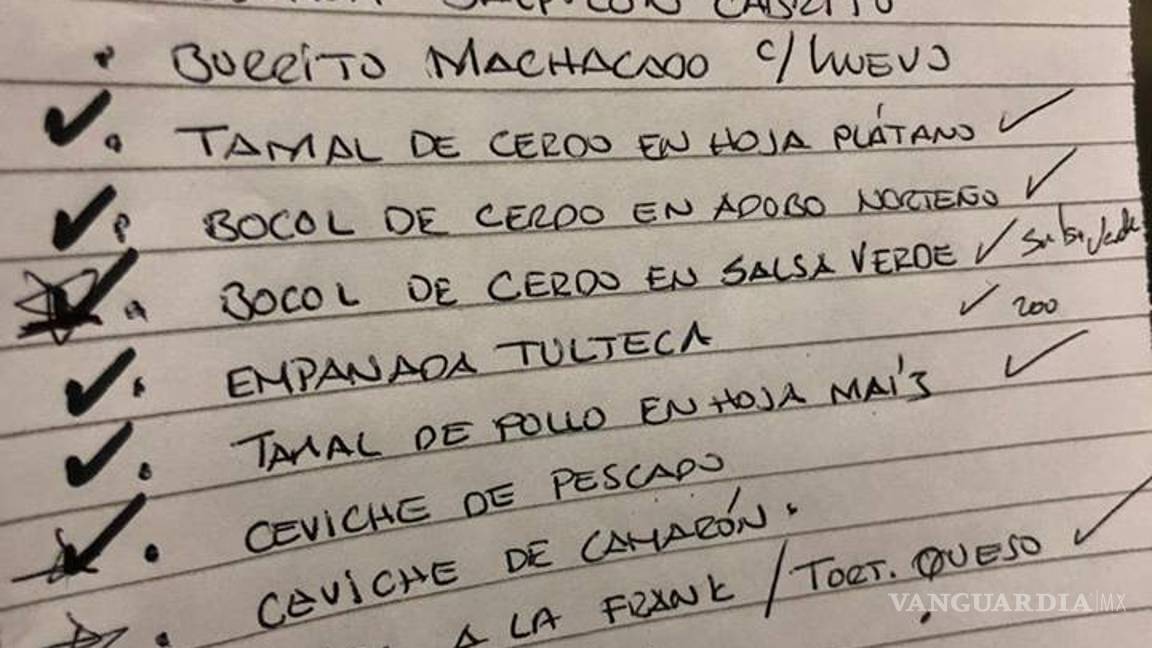 SALPICÓN CABRITO
• BURRITO MACHACADO C/HUEVO
✓ • TAMAL DE CERDO EN HOJA PLÁTANO ✓
✓ • BOCOL DE CERDO EN ADOBO NORTEÑO ✓
✓ • BOCOL DE CERDO EN SALSA VERDE ✓ Salsa Verde
✓ • EMPANADA TULTECA ✓ 200
✓ • TAMAL DE POLLO EN HOJA MAÍZ ✓
✓ • CEVICHE DE PESCADO
• CEVICHE DE CAMARÓN.
A LA FRANK / TORT. QUESO ✓
VANGUARDIA|MX